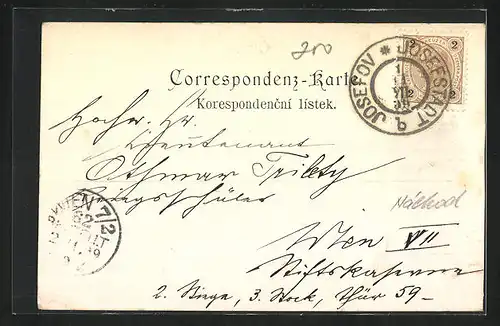 200
Correspondenz-Karte
Korespondenční lístek.
JOSEFSTADT * JOSEFOV
2 2
2 2
Hochw. Hr.
Lieutenant
Othmar
Kriegsschüler
Wien VII
Náchod
Stiftskaserne
2. Stiege, 3. Stock, Thür 59-
WIEN 7/2